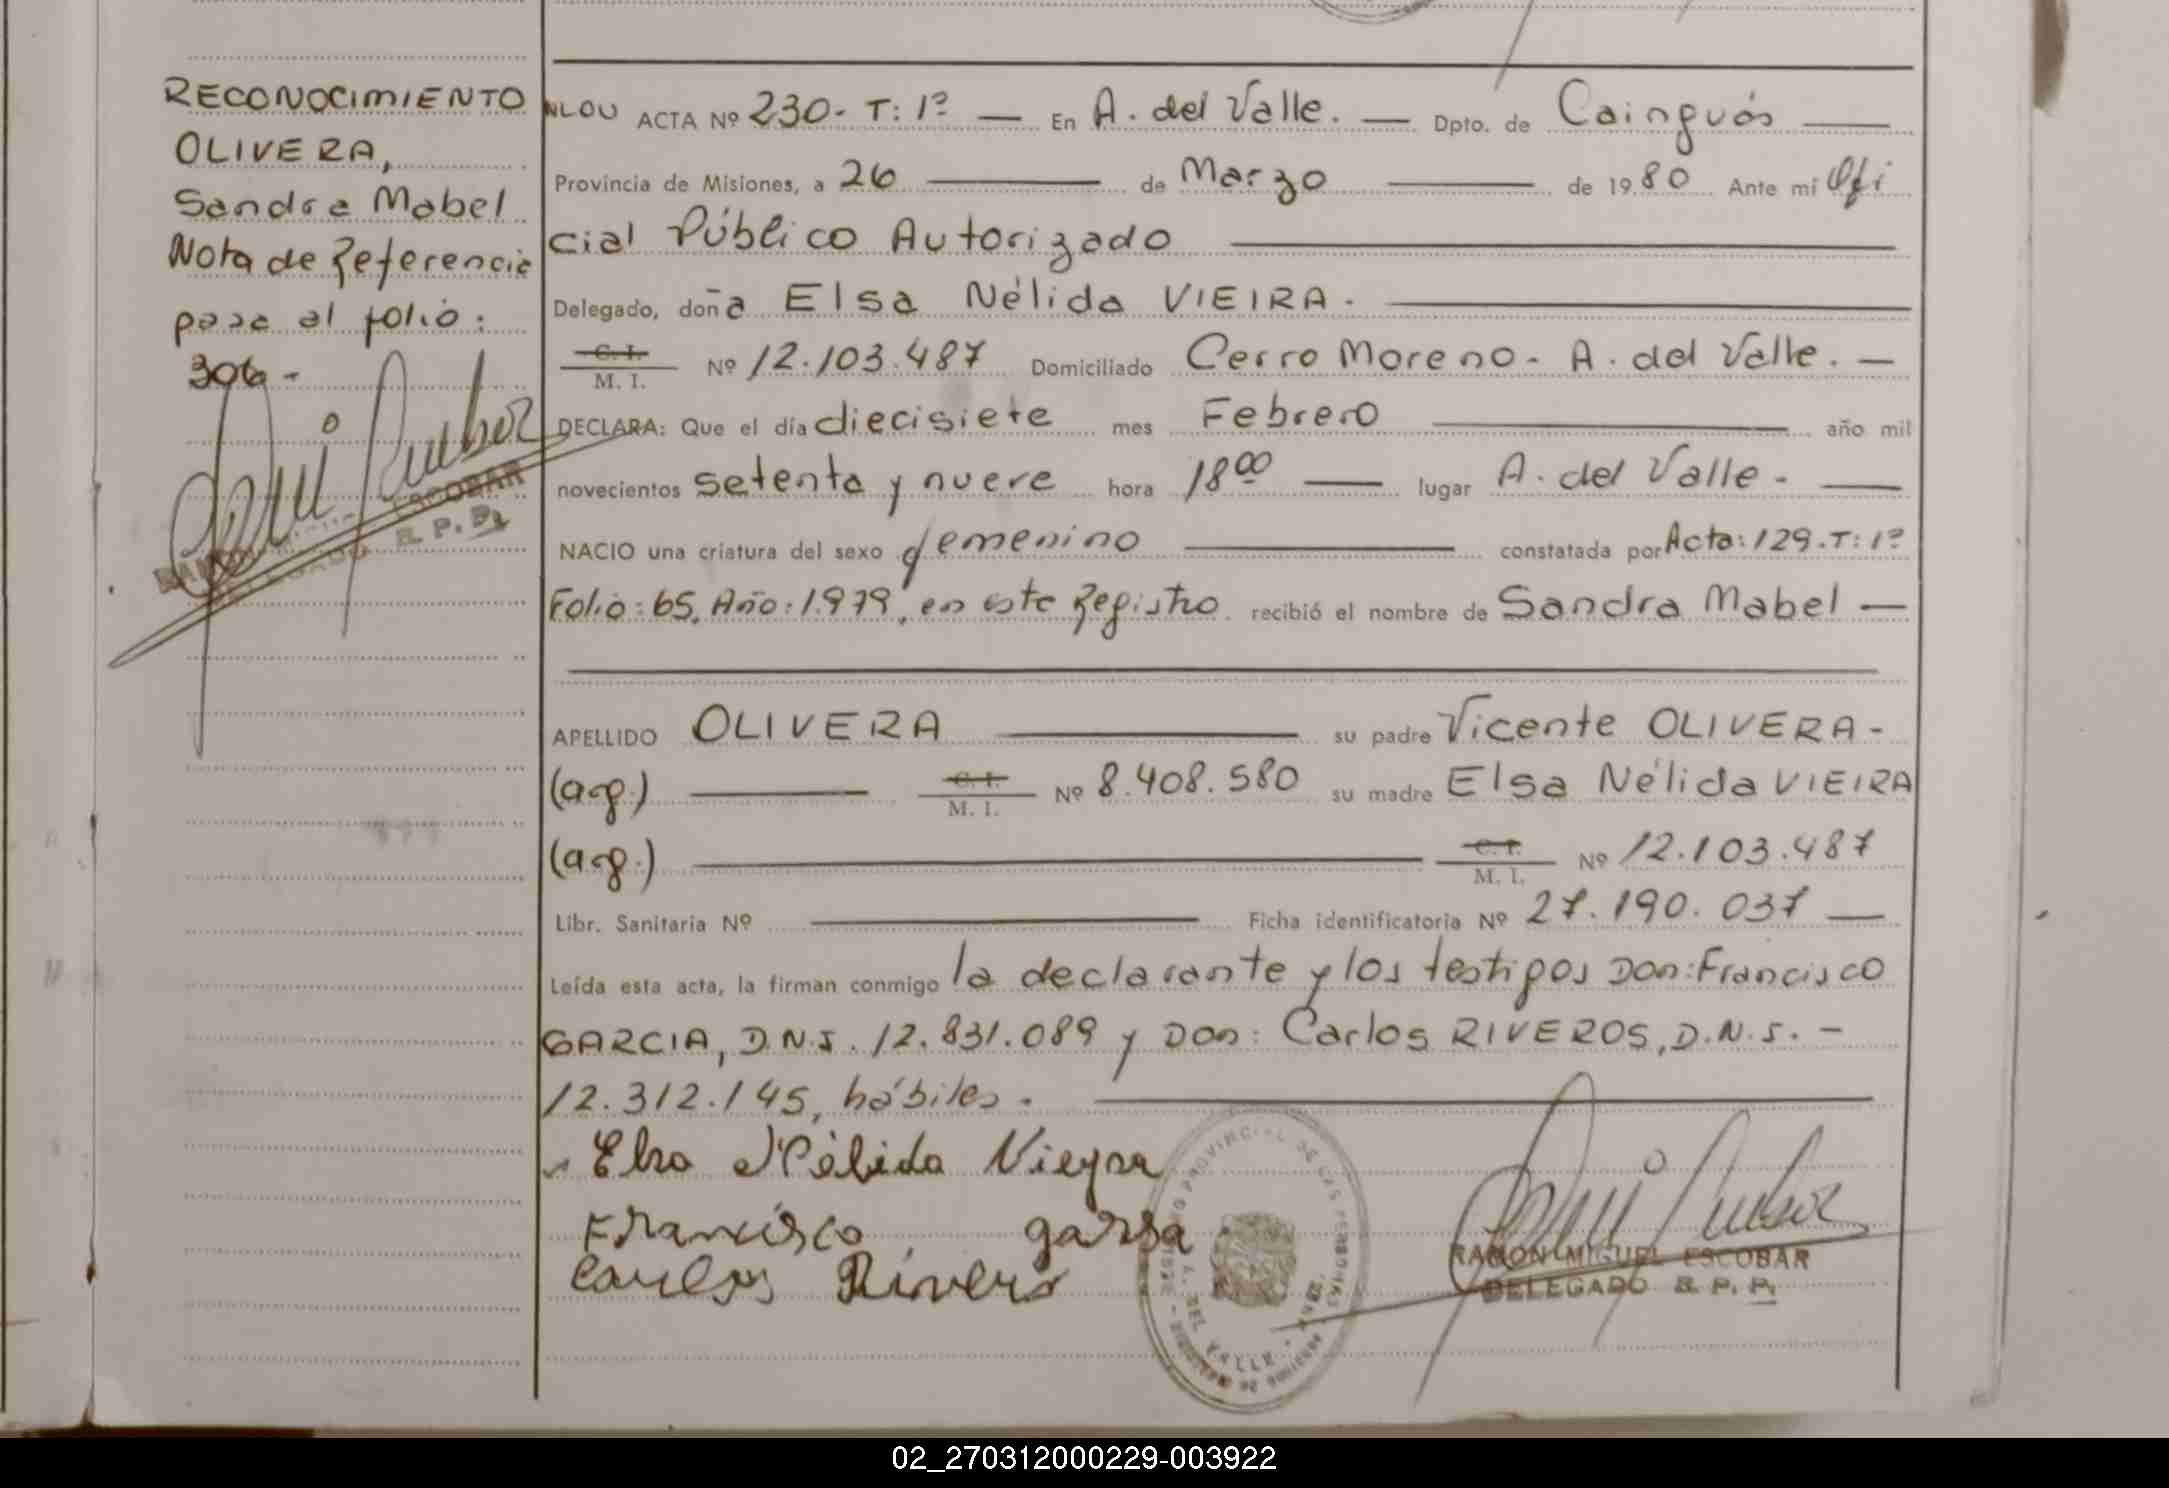 RECONOCIMIENTO
OLIVERA,
Sandra Mabel
Nota de Referencia
pasa al folio:
306-
RAMON MIGUEL ESCOBAR
DELEGADO R. P. P.
NLOU ACTA Nº 230- T: 1º — En A. del Valle. — Dpto. de Cainguás —
Provincia de Misiones, a 26 — de Marzo — de 1980 Ante mí Ofi
cial Público Autorizado
Delegado, doña Elsa Nélida VIEIRA.
C. I.
M. I. Nº 12.103.487 Domiciliado Cerro Moreno- A. del Valle. —
DECLARA: Que el día diecisiete mes Febrero — año mil
novecientos setenta y nueve hora 18⁰⁰ — lugar A. del Valle - —
NACIO una criatura del sexo femenino — constatada por Acta: 129. T: 1º
Folio: 65, Año: 1.979, en este Registro. recibió el nombre de Sandra Mabel —
APELLIDO OLIVERA — su padre Vicente OLIVERA-
(arg.) — C. I. M. I. Nº 8.408.580 su madre Elsa Nélida VIEIRA
(arg.) — C. I. M. I. Nº 12.103.487
Libr. Sanitaria Nº — Ficha identificatoria Nº 27.190.037 —
Leída esta acta, la firman conmigo la declarante y los testigos Don: Francisco
GARCIA, D.N.I. 12.831.089 y Don: Carlos RIVEROS, D.N.I. -
12.312.145, hábiles.
Elsa Nélida Vieyra
Francisco garsa
Carlos Rivero
RAMON MIGUEL ESCOBAR
DELEGADO R. P. P.
PROVINCIAL DE LAS PERSONAS
A. DEL VALLE
02_270312000229-003922